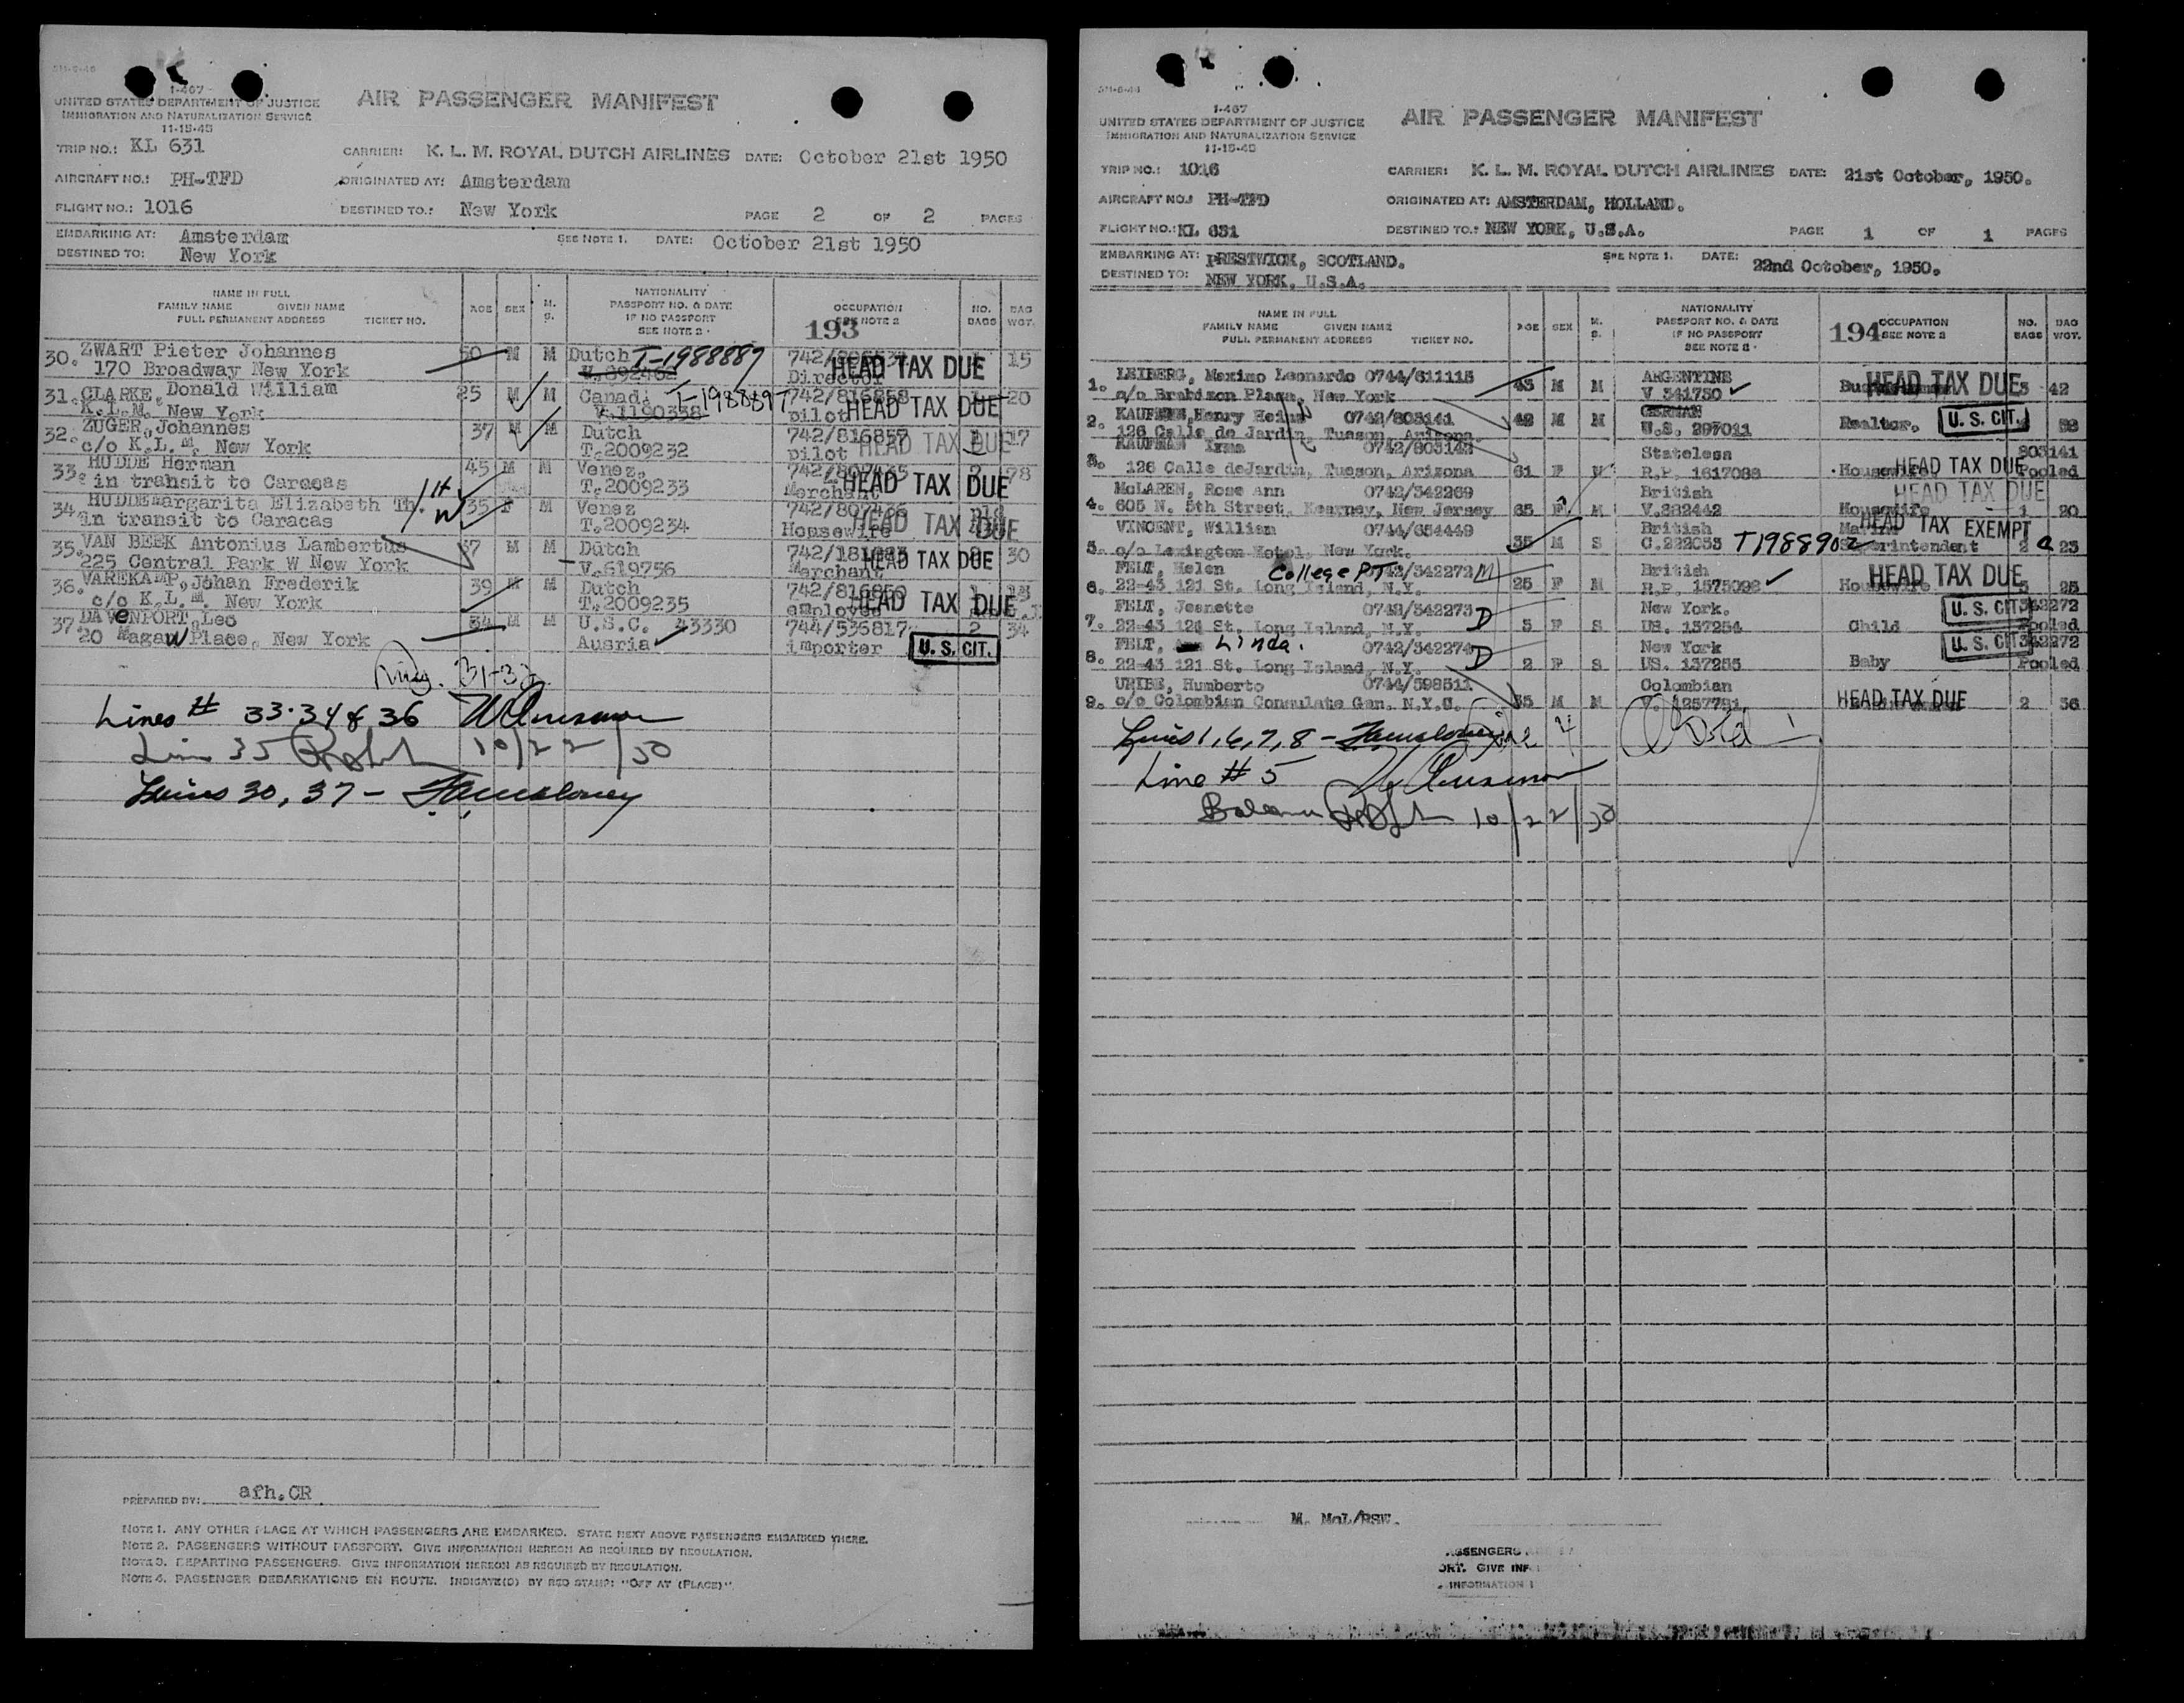 I-407
UNITED STATES DEPARTMENT OF JUSTICE
IMMIGRATION AND NATURALIZATION SERVICE
11-15-45
AIR PASSENGER MANIFEST
TRIP NO.: KL 631
CARRIER: K. L. M. ROYAL DUTCH AIRLINES DATE: October 21st 1950
AIRCRAFT NO.: PH-TFD
ORIGINATED AT: Amsterdam
FLIGHT NO.: 1016
DESTINED TO.: New York
PAGE 2 OF 2 PAGES
EMBARKING AT: Amsterdam
SEE NOTE 1. DATE: October 21st 1950
DESTINED TO: New York
NAME IN FULL
FAMILY NAME GIVEN NAME
FULL PERMANENT ADDRESS TICKET NO.
AGE SEX M. S.
NATIONALITY
PASSPORT NO. & DATE
IF NO PASSPORT
SEE NOTE 2
OCCUPATION
SEE NOTE 2
193
NO. BAGS
BAG WGT.
30. ZWART Pieter Johannes 50 M M Dutch T-1988887 HEAD TAX DUE 15
170 Broadway New York V.892462 Director
31. CLARKE, Donald William 25 M M Canad. T-1988897 742/816858 20
K.L.M. New York V.1190338 pilot HEAD TAX DUE
32. ZUGER, Johannes 37 M M Dutch 742/816857 HEAD TAX DUE 17
c/o K.L.M. New York T.2009232 pilot
33. HUDDE Herman 45 M M Venez. 742/807435 78
in transit to Caracas T.2009233 Merchant HEAD TAX DUE
34. HUDDE Margarita Elizabeth Th. H/W 35 F M Venez 742/807436 pld
in transit to Caracas T.2009234 Housewife HEAD TAX DUE
35. VAN BEEK Antonius Lambertus 37 M M Dutch 30
225 Central Park W New York V.619756 Merchant HEAD TAX DUE
36. VAREKAMP, Johan Frederik 39 M M Dutch 742/816860 1
c/o K.L.M. New York T.2009235 employee HEAD TAX DUE
37. DAVENPORT, Leo 34 M M U.S.C. 43330 744/536817 2 34
20 Magaw Place, New York Ausria importer U. S. CIT.
31-32
Lines # 33.34 & 36
Line 35 10/22/50
Lines 30, 37 -
PREPARED BY: afh.CR
NOTE 1. ANY OTHER PLACE AT WHICH PASSENGERS ARE EMBARKED. STATE NEXT ABOVE PASSENGERS EMBARKED THERE.
NOTE 2. PASSENGERS WITHOUT PASSPORT. GIVE INFORMATION HEREON AS REQUIRED BY REGULATION.
NOTE 3. DEPARTING PASSENGERS. GIVE INFORMATION HEREON AS REQUIRED BY REGULATION.
NOTE 4. PASSENGER DEBARKATIONS EN ROUTE. INDICATE(D) BY RED STAMP: "OFF AT (PLACE)".
I-407
UNITED STATES DEPARTMENT OF JUSTICE
IMMIGRATION AND NATURALIZATION SERVICE
11-15-45
AIR PASSENGER MANIFEST
TRIP NO.: 1016
CARRIER: K. L. M. ROYAL DUTCH AIRLINES DATE: 21st October, 1950.
AIRCRAFT NO.: PH-TFD
ORIGINATED AT: AMSTERDAM, HOLLAND.
FLIGHT NO.: KL 631
DESTINED TO.: NEW YORK, U.S.A.
PAGE 1 OF 1 PAGES
EMBARKING AT: PRESTWICK, SCOTLAND.
SEE NOTE 1. DATE: 22nd October, 1950.
DESTINED TO: NEW YORK, U.S.A.
NAME IN FULL
FAMILY NAME GIVEN NAME
FULL PERMANENT ADDRESS TICKET NO.
AGE SEX M. S.
NATIONALITY
PASSPORT NO. & DATE
IF NO PASSPORT
SEE NOTE 2
194 OCCUPATION
SEE NOTE 2
NO. BAGS
BAG WGT.
1. LEIBERG, Maximo Leonardo 0744/611115 43 M M ARGENTINE HEAD TAX DUE 3 42
c/o Brabizon Plaza, New York V 341750
2. KAUFMAN, Henry 0742/803141 49 M M GERMAN Realtor. U. S. CIT.
126 Calle de Jardin, Tucson, Arizona. U.S. 297011
3. KAUFMAN Irma 0742/803142 Stateless 803141
126 Calle deJardin, Tucson, Arizona 61 F M R.P. 1617088 Housewife HEAD TAX DUE Pooled
4. McLAREN, Rose Ann 0742/342269 British HEAD TAX DUE
605 N. 5th Street, Kearney, New Jersey 65 F M V.382442 Housewife 1 20
5. VINCENT, William 0744/654449 35 M S British HEAD TAX EXEMPT
c/o Lexington Hotel, New York. C.222033 T1988902 2 23
6. FELT, Helen College PT 0742/342272 M 25 F M British HEAD TAX DUE
22-43 121 St. Long Island, N.Y. R.P. 1575092 Housewife 3 25
7. FELT, Jeanette 0742/342273 D New York. U. S. CIT 342272
22-43 121 St. Long Island, N.Y. 5 F S US. 137254 Child Pooled
8. FELT, Linda. 0742/342274 D New York U. S. CIT 342272
22-43 121 St. Long Island, N.Y. 2 F S US. 137255 Baby Pooled
9. URIBE, Humberto 0744/598511 Colombian
c/o Colombian Consulate Gen. N.Y.C. 35 M M V. 1257791 HEAD TAX DUE 2 36
Lines 1, 6, 7, 8 -
Line # 5
10/22/50
M. McL/RSW.